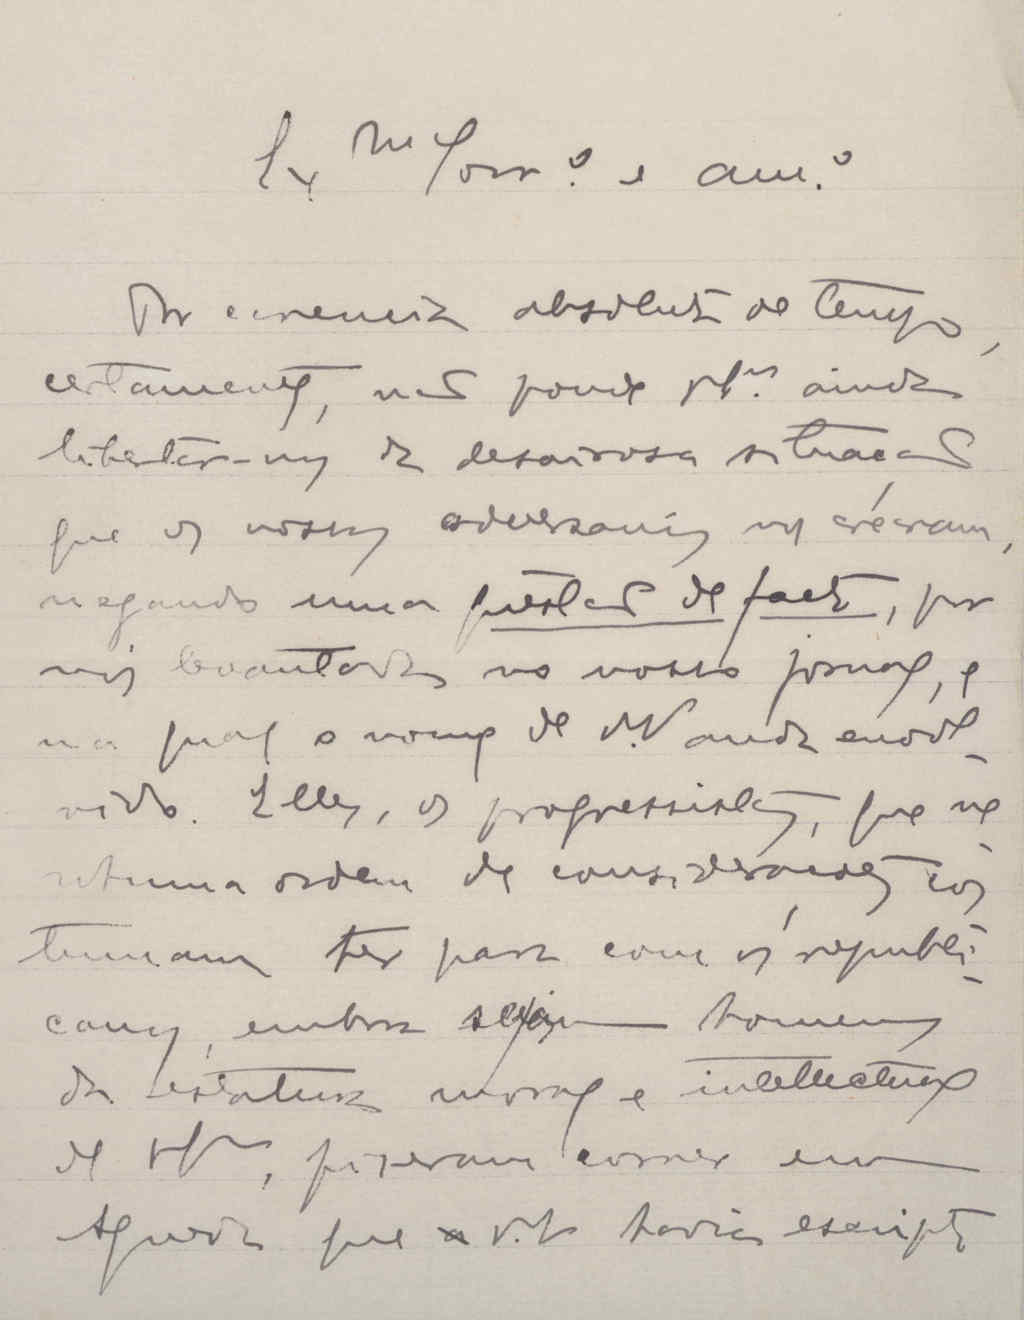 Ex.mo Corr.º e am.º
Por carencia absoluta de tempo,
certamente, não poude V. Ex.ª ainda
libertar-nos da desairosa situação
que os nossos adversarios nos crearam,
negando uma questão de facto, por
nós levantada no nosso jornal, e
na qual o nome de V. anda envol-
vido. Elles, os progressistas, que ne-
nhuma ordem de considerações cos-
tumam ter para com os republi-
canos, embora sejam homens
da estatura moral e intellectual
de V. Ex.ª, fizeram correr em
Agueda que V. havia escripto